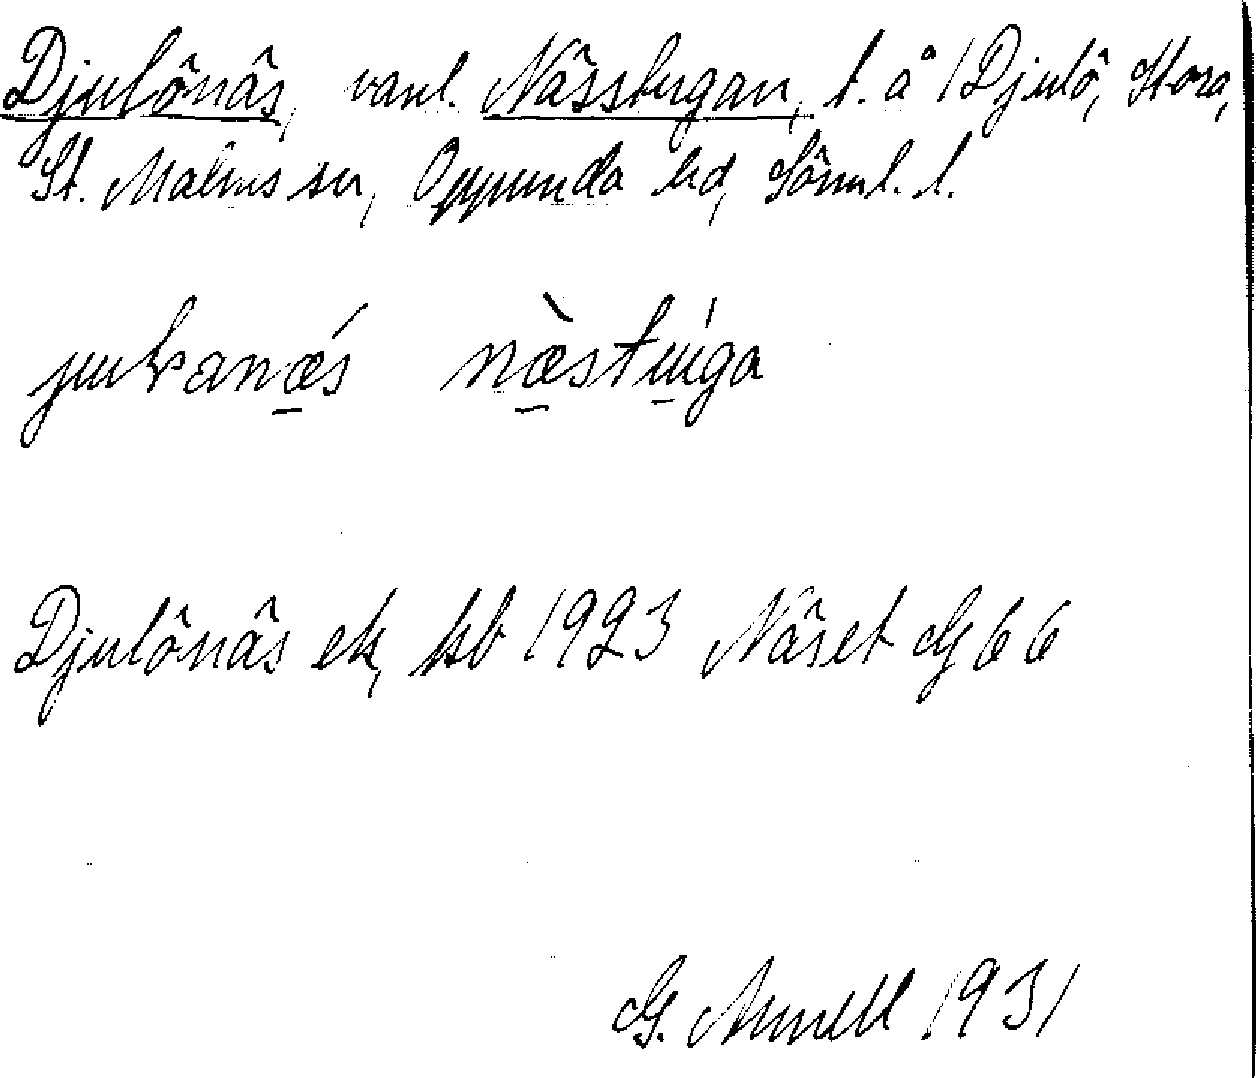 Djulönäs, vanl. Nässtugan, t. å / Djulö, Stora,
St. Malms sn, Oppunda hd, Söml. l.
Djulönäs ek, kb 1923 Näset G 66
G. Annell 1931